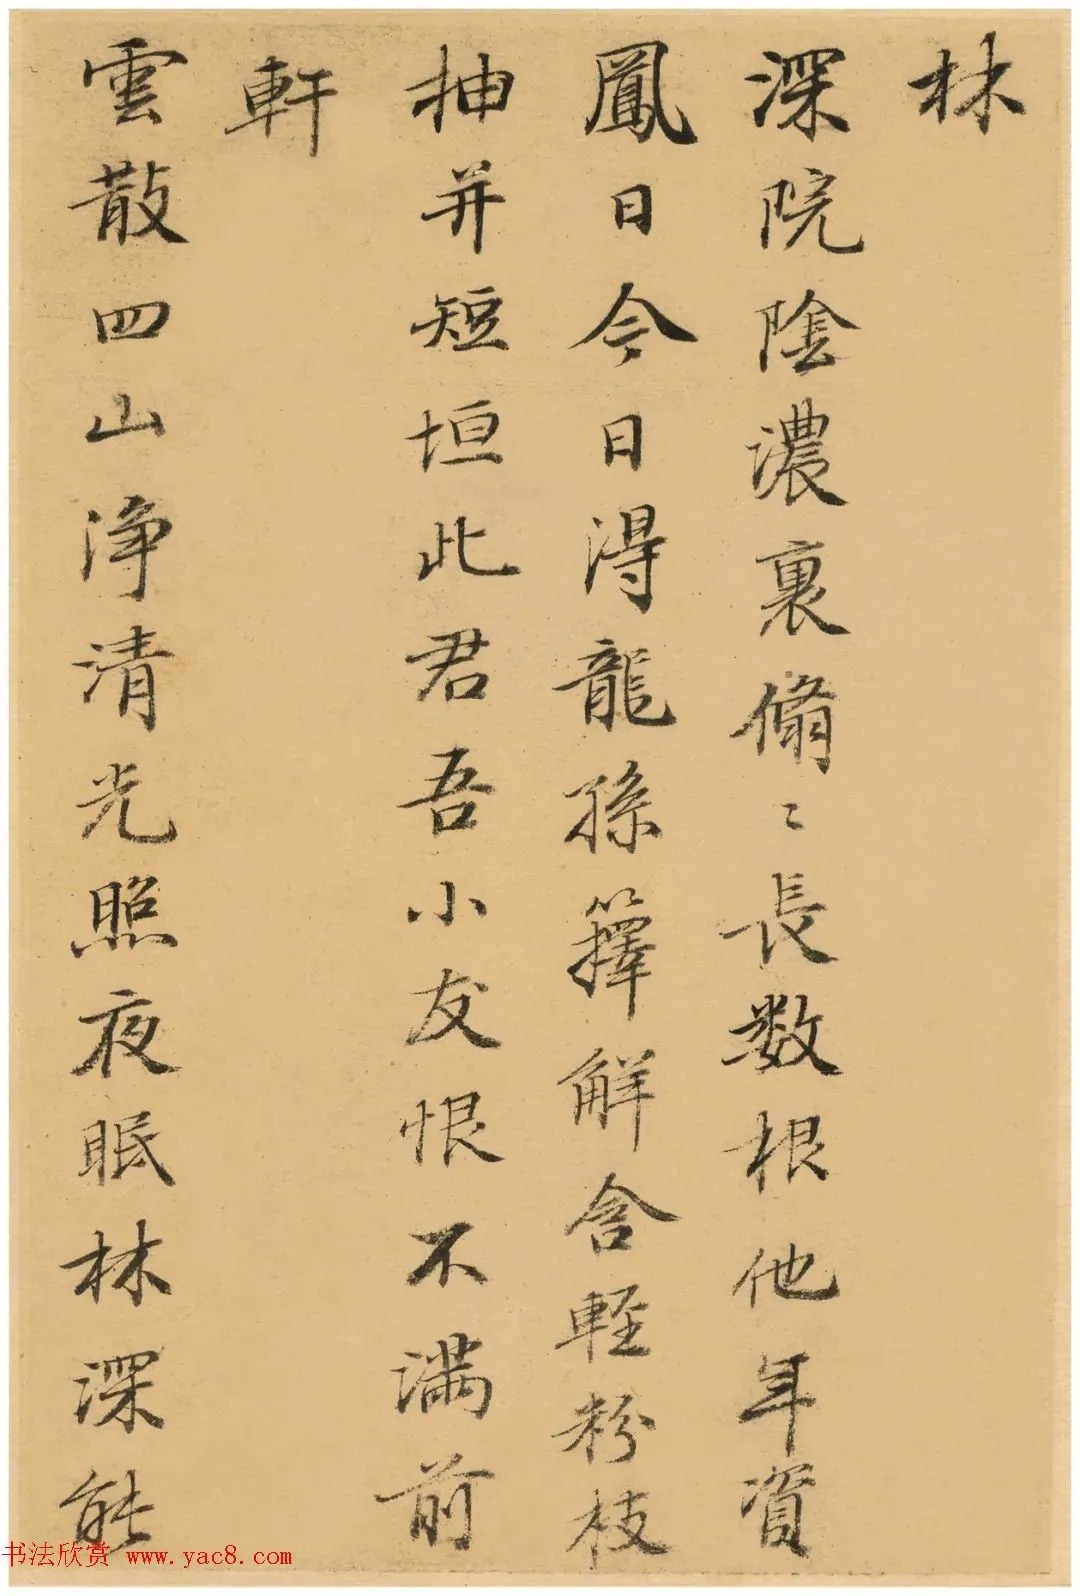 林
深院陰濃裏脩〻長数根他年資
鳳日今日得龍孫籜解含輕粉枝
抽并短垣此君吾小友恨不滿前
軒
雲散四山净清光照夜眠林深能
书法欣赏 www.yac8.com